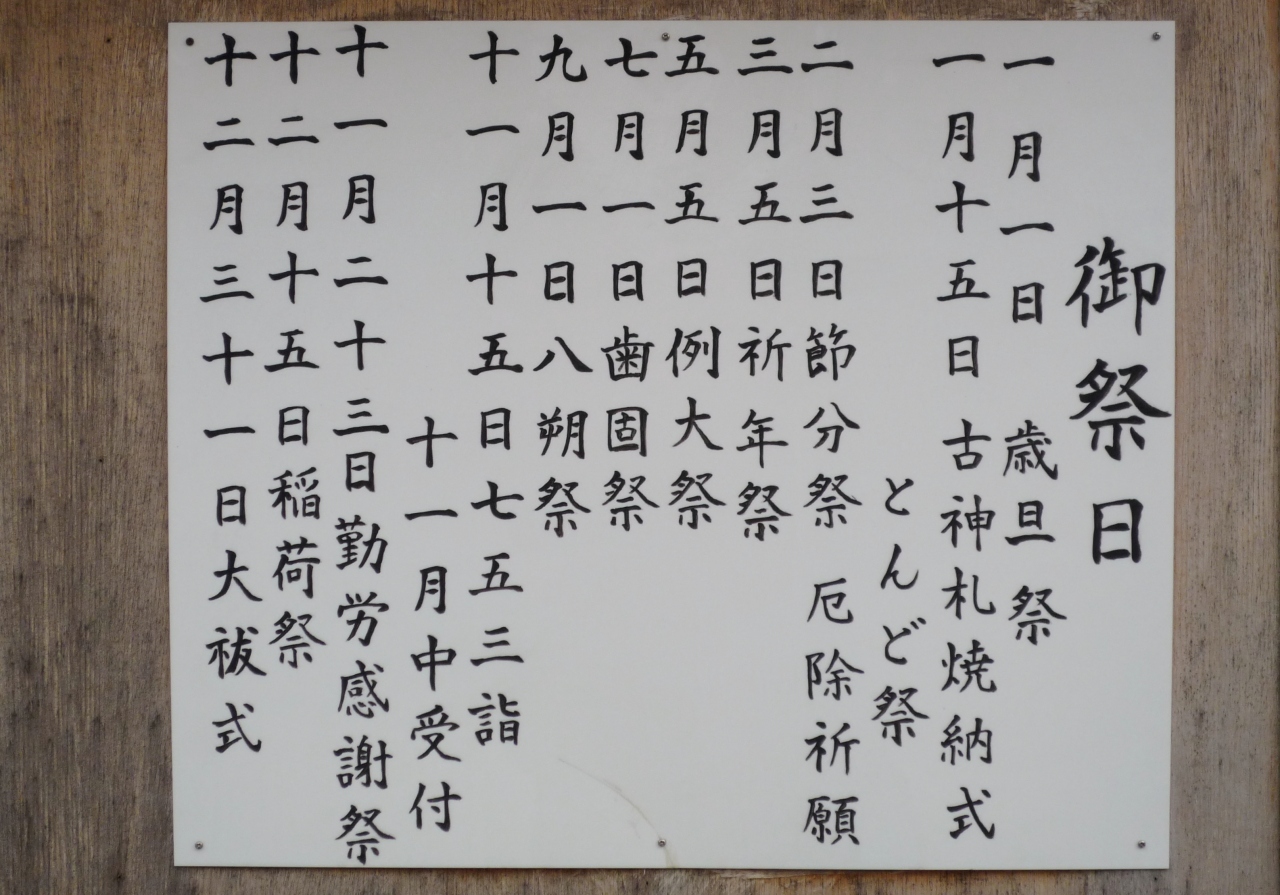 御祭日
一月一日 歳旦祭
一月十五日 古神札焼納式
とんど祭
二月三日節分祭 厄除祈願
三月五日祈年祭
五月五日例大祭
七月一日歯固祭
九月一日八朔祭
十一月十五日七五三詣
十一月中受付
十一月二十三日勤労感謝祭
十二月十五日稲荷祭
十二月三十一日大祓式